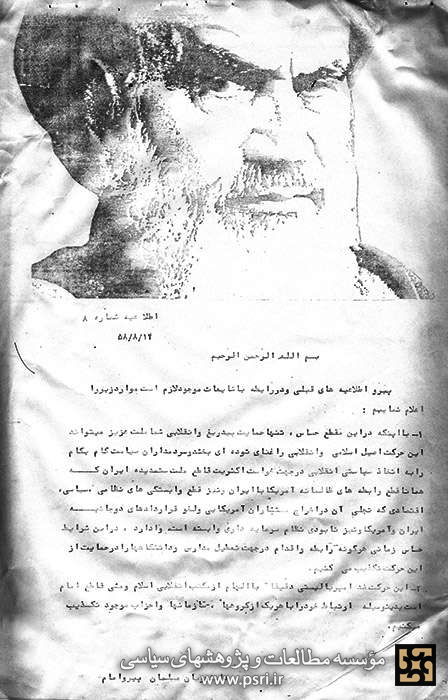 اطلاعیه شماره ۸
۵۸/۸/۱۴
بسم الله الرحمن الرحیم
پیرو اطلاعیه های قبلی ودر رابطه باشایعات موجودلازم است مواردزیررا
اعلام نماییم :
۱- بااینکه دراین مقطع حساس ، تنهاحمایت بیدریغ وانقلابی شما ملت عزیز میتواند
این حرکت اصیل اسلامی وانقلابی راغنای توده ای بخشدوسردمداران سیاست گام بگام
را به اتخاذ سیاستی انقلابی درجهت خواست اکثریت قاطع ملت ستمدیده ایران کـه
همانا قطع رابطه های ظالمانه آمریکا با ایران ونیز قطع وابستگی های نظامی ،سیاسی،
اقتصادی که تجلی آن دراخراج مستشاران آمریکایی ولغو قراردادهای دوجانبـه
ایران وآمریکا ونیز نابودی نظام سرمایه داری وابسته است وادارد ، دراین شرایط
حساس زمانی هرگونه رابطه واقدام درجهت تعطیل مدارس ودانشگاهها رادرحمایت از
این حرکت تکذیب می کنیم .
۲- این حرکت ضد امپریالیستی دقیقا" با الهام ازمکتب انقلابی اسلام ومشی قاطع امام
است بدینوسیله ارتباط خودرا با هریک ازگروهها ،سازمانها واحزاب موجود تکذیب
میکنیم.
مسلمان پیروامام
مؤسسه مطالعات و پژوهشهای سیاسی
www.psri.ir